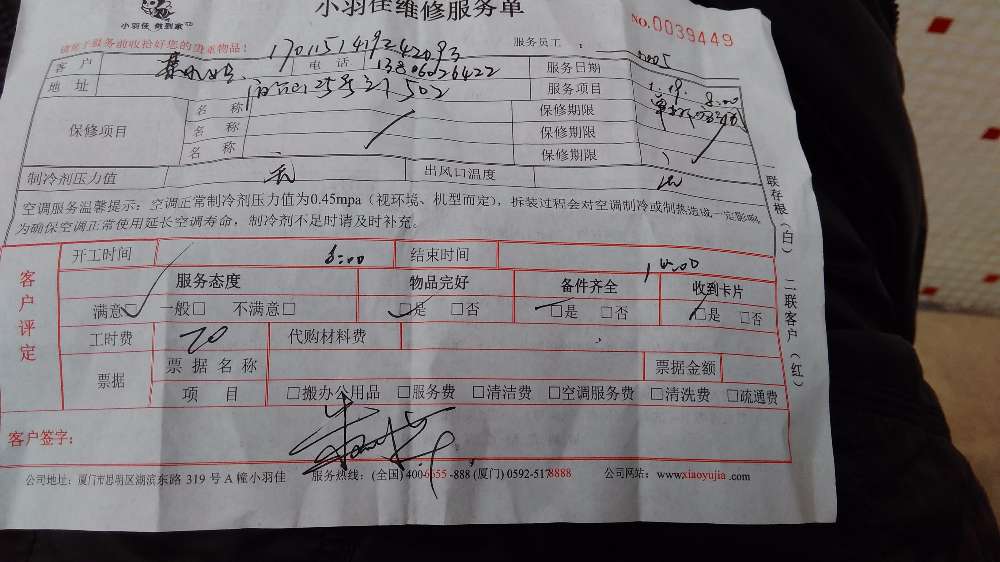 小羽佳维修服务单
小羽佳 做到家
NO.0039449
请您于服务前收拾好您的贵重物品！
170115141924 42093
服务员工：
客户
电话
13806026422
服务日期
地址
25号 502
服务项目
8:00
保修项目
名称
保修期限
名称
保修期限
名称
保修期限
制冷剂压力值
出风口温度
空调服务温馨提示：空调正常制冷剂压力值为0.45mpa（视环境、机型而定），拆装过程会对空调制冷或制热造成一定影响，
为确保空调正常使用延长空调寿命，制冷剂不足时请及时补充。
一联存根（白） 二联客户（红）
客户评定
开工时间
8:00
结束时间
服务态度
物品完好
备件齐全
收到卡片
满意□ 一般□ 不满意□
□是 □否
□是 □否
□是 □否
工时费
20
代购材料费
票据
票据名称
票据金额
项目
□搬办公用品 □服务费 □清洁费 □空调服务费 □清洗费 □疏通费
客户签字：
公司地址：厦门市思明区湖滨东路 319 号 A 幢小羽佳 服务热线：(全国) 400-6655-888 (厦门) 0592-5178888 公司网站：www.xiaoyujia.com